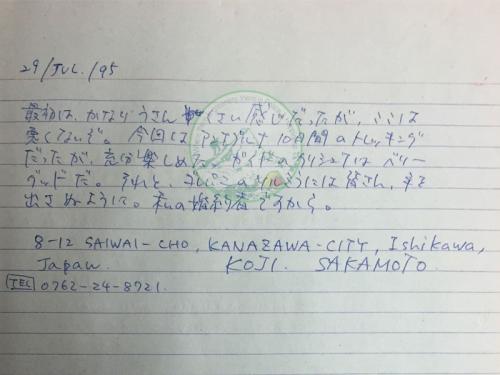 29/JUL./95
最初は、かなりうさんくさい感じだったが、ここは
悪くないぞ。今回は 10日間のトレッキング
だったが、充分楽しめた。ガイドの はベリー
グッドだ。それと、 には皆さん、手を
出さぬように。私の婚約者ですから。
8-12 SAIWAI-CHO, KANAZAWA-CITY, Ishikawa,
Japan. KOJI. SAKAMOTO.
TEL 0762-24-8721.